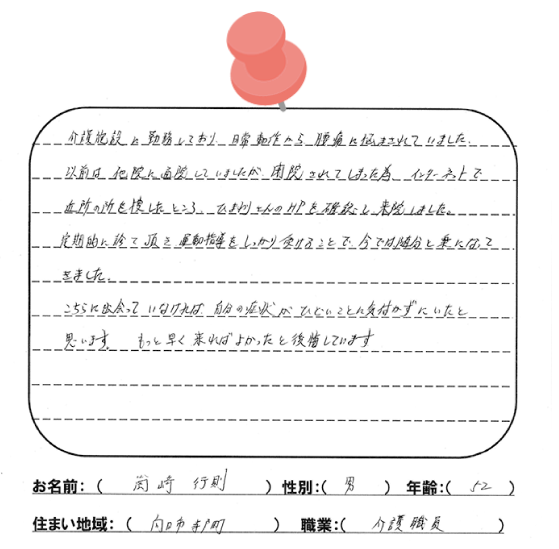 介護施設に勤務しており、日常動作から腰痛に悩まされていました。
以前は他院に通院していましたが、閉院されてしまった為、インターネットで
近所の所を検したところ、ひまわりさんのHPを確認し来院しました。
定期的に診て頂き運動指導をしっかり受けることで、今では随分と楽になって
きました。
こちらに出会っていなければ自分の症状がひどいことに気付かずにいたと
思います。 もっと早く来ればよかったと後悔しています
お名前:( 岡崎 行則 ) 性別:( 男 ) 年齢:( 52 )
住まい地域:( 向日市 ) 職業:( 介護職員 )